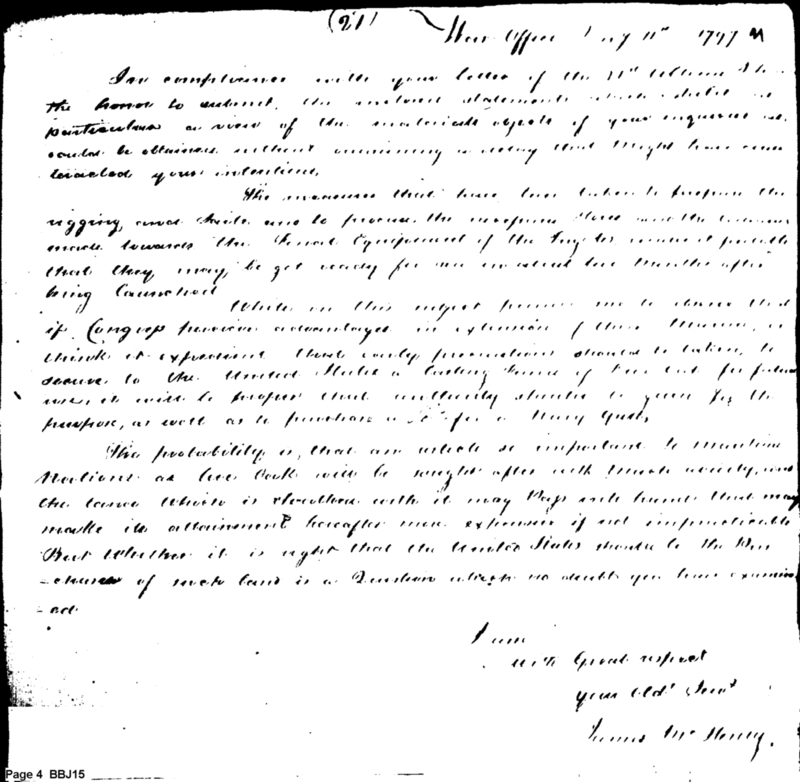 (21)
War Office 11th 1797
In compliance with your letter of the Ult. I
the honor to submit, the enclosed statements which exhibit as
particular a view of the materials objects of your inquiries as
could be obtained without occasioning a delay that might have
your intentions.
The measures that have been taken to prepare the
rigging, and Sails and to procure the necessary Stores and the
made towards the Final Equipment of the Frigates render it probable
that they may, be got ready for sea in about two Months after
being launched
While on this subject permit me to observe that
if Congress perceive advantages in extension of their Marine, or
think it expedient that early precautions should be taken, to
secure to the United States a lasting fund of Live Oak for future
use, it will be proper that authority should be given for the
purpose, as well as to purchase a for a Navy Yard,
The probability is, that an article so important to Maritime
Nations as live Oak will be sought after with much avidity, and
the land which is cloathed with it may Pass into hands that may
make its attainment hereafter more expensive if not impracticable
But Whether it is right that the United States should be the Pur
-chaser of such land is a Question which no doubt you have examin
-ed
I am
with Great respect
your Obdt Servt
James McHenry.
Page 4 BBJ15